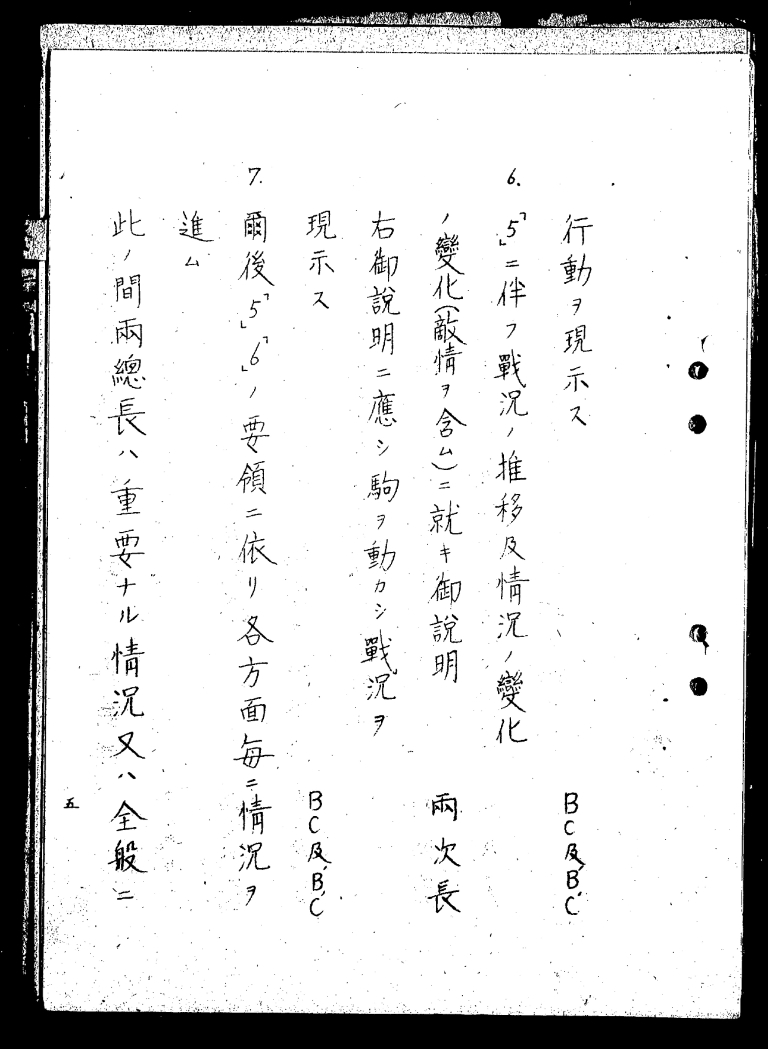 行動ヲ現示ス　BC及B'C'
6. 「5」ニ伴フ戰況ノ推移及情況ノ變化
ノ變化(敵情ヲ含ム)ニ就キ御說明　兩次長
右御說明ニ應シ駒ヲ動カシ戰況ヲ
現示ス　BC及B'C'
7. 爾後「5」「6」ノ要領ニ依リ各方面每ニ情況ヲ
進ム
此ノ間兩總長ハ重要ナル情況又ハ全般ニ
五